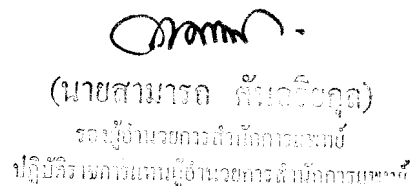 (นายสามารถ ตันอริยกุล)
รองผู้อำนวยการสำนักการแพทย์
ปฏิบัติราชการแทนผู้อำนวยการสำนักการแพทย์